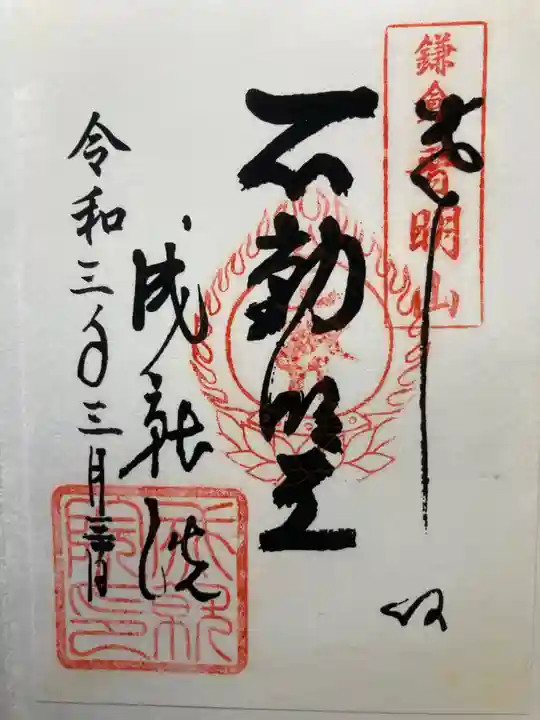 鎌倉 普明山
奉拝
不動明王
成就院
令和三年三月三日
成就院印